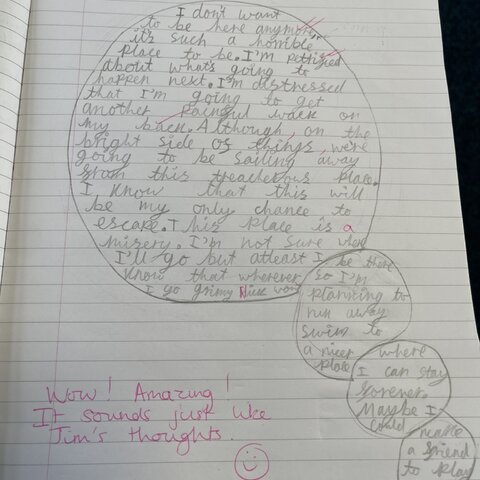 I don't want
to be here anymore,
it's such a horrible
place to be. I'm petrified
about what's going to
happen next. I'm distressed
that I'm going to get
another painful wack on
my back. Although, on the
bright side of things, were
going to be sailing away
from this treacherous place.
I know that this will
be my only chance to
escape. This place is a
misery. I'm not sure where
I'll go but atleast I
know that wherever
I go grimy Nick won't
be there
so I'm
planning to
run away
swim to
a nicer
place
where
I can stay
forever.
Maybe I
could
make
a friend
to play
Wow! Amazing!
It sounds just like
Jim's thoughts.